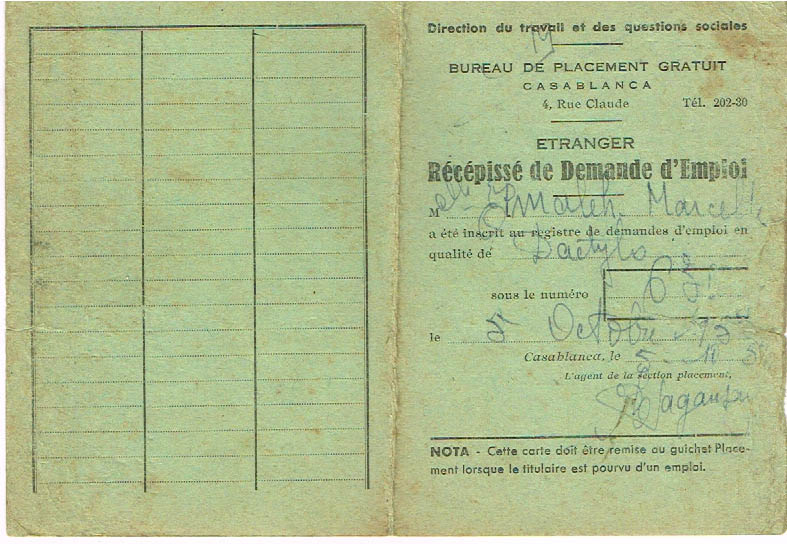 Direction du travail et des questions sociales
BUREAU DE PLACEMENT GRATUIT
CASABLANCA
4, Rue Claude Tél. 202-30
ETRANGER
Récépissé de Demande d'Emploi
M Marcelle
a été inscrit au registre de demandes d'emploi en
qualité de Dactylo
sous le numéro
le 5 Octobre
Casablanca, le 5
L'agent de la section placement,
NOTA - Cette carte doit être remise au guichet Place-
ment lorsque le titulaire est pourvu d'un emploi.